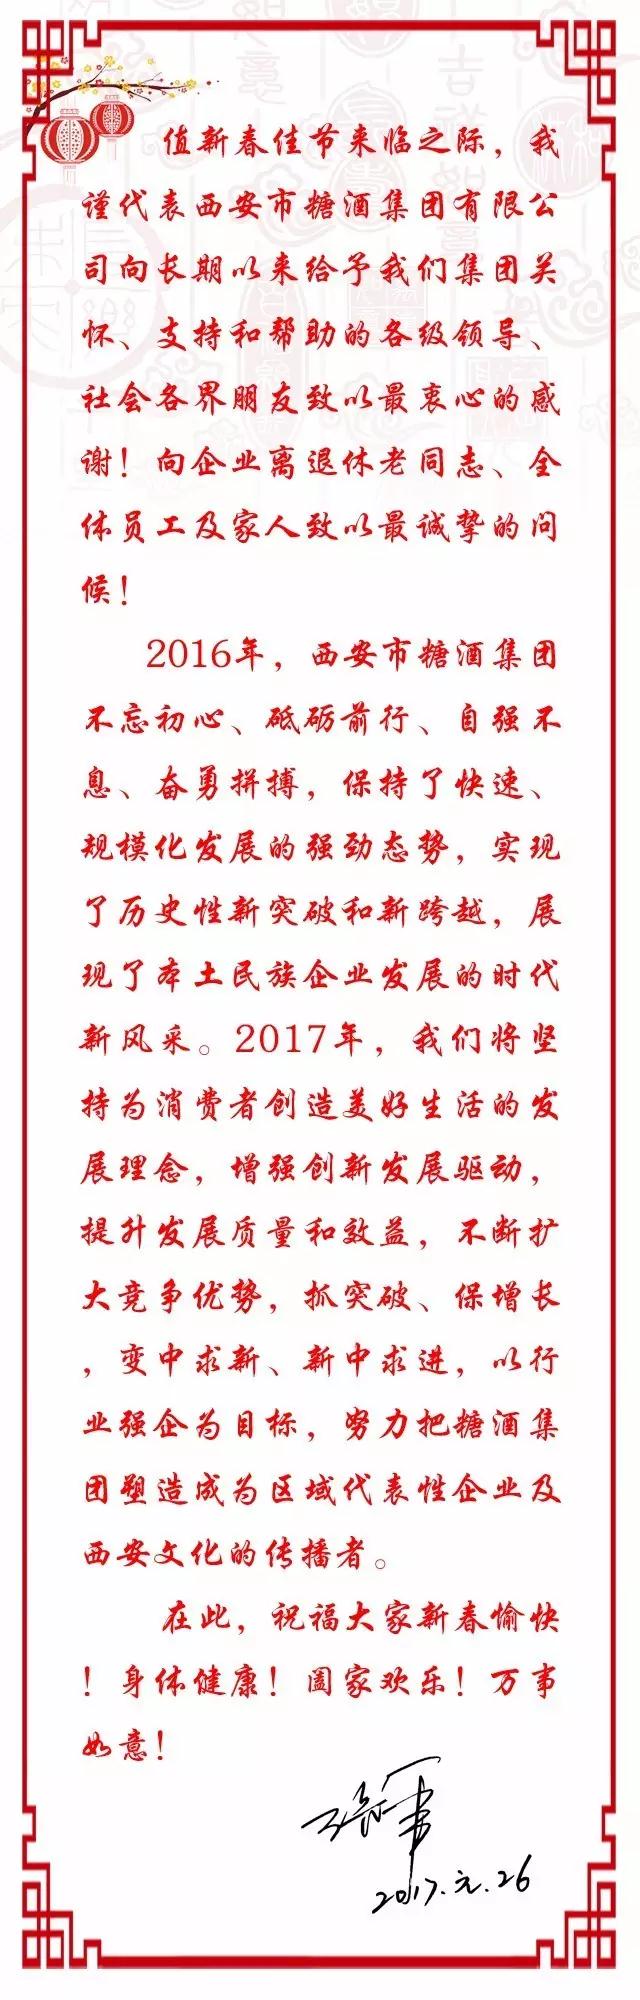 值新春佳节来临之际，我
谨代表西安市糖酒集团有限公
司向长期以来给予我们集团关
怀、支持和帮助的各级领导、
社会各界朋友致以最衷心的感
谢！向企业离退休老同志、全
体员工及家人致以最诚挚的问
候！
2016年，西安市糖酒集团
不忘初心、砥砺前行、自强不
息、奋勇拼搏，保持了快速、
规模化发展的强劲态势，实现
了历史性新突破和新跨越，展
现了本土民族企业发展的时代
新风采。2017年，我们将坚
持为消费者创造美好生活的发
展理念，增强创新发展驱动，
提升发展质量和效益，不断扩
大竞争优势，抓突破、保增长
，变中求新、新中求进，以行
业强企为目标，努力把糖酒集
团塑造成为区域代表性企业及
西安文化的传播者。
在此，祝福大家新春愉快
！身体健康！阖家欢乐！万事
如意！
2017.元.26